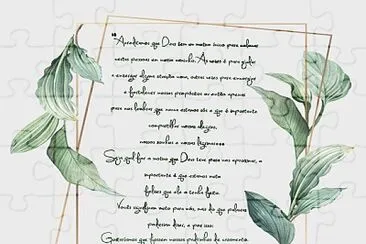 "Acreditamos que Deus tem um motivo único para colocar
certas pessoas em nosso caminho. Às vezes é para ajudar
a enxergar algum sentido novo, outras vezes para enxergar
e fortalecer nossos propósitos ou então apenas
para nos lembrar que nunca estamos sós e que é importante
compartilhar nossas alegrias,
nossos sonhos e nossas lágrimas
Seja qual for o motivo que Deus teve para nos aproximar, o
importante é que estamos
felizes que ele o tenha feito.
Vocês significam muito para nós, mais do que palavras
poderiam dizer, e por isso:
Gostaríamos que fossem nossos padrinhos de casamento.